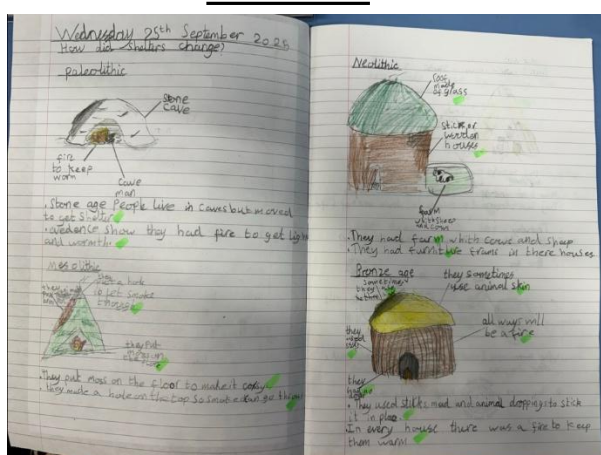 Wednesday 25th September 2025
How did shelters change?
paleolithic
Stone
cave
fire
to keep
worm
cave
man
. Stone age People live in caves but moved
to get shelter
. evedence show they had fire to get light
and wormth.
Mesolithic
they put
moss on
They put moss on the floor to make it cosy
. they made a hole on the top so smoke can go
Neolithic
roof
made
of grass
sticks or
wooden
houses
farm
. They had farm whith cows and sheep
. They had furniture in there houses
Bronze age
sometimes
they
they sometimes
use animal skin
all ways will
be a fire
they
used
they
had no
door
. They used sticks, mud and animal droppings to stick
it in place.
In every house there was a fire to keep
them warm